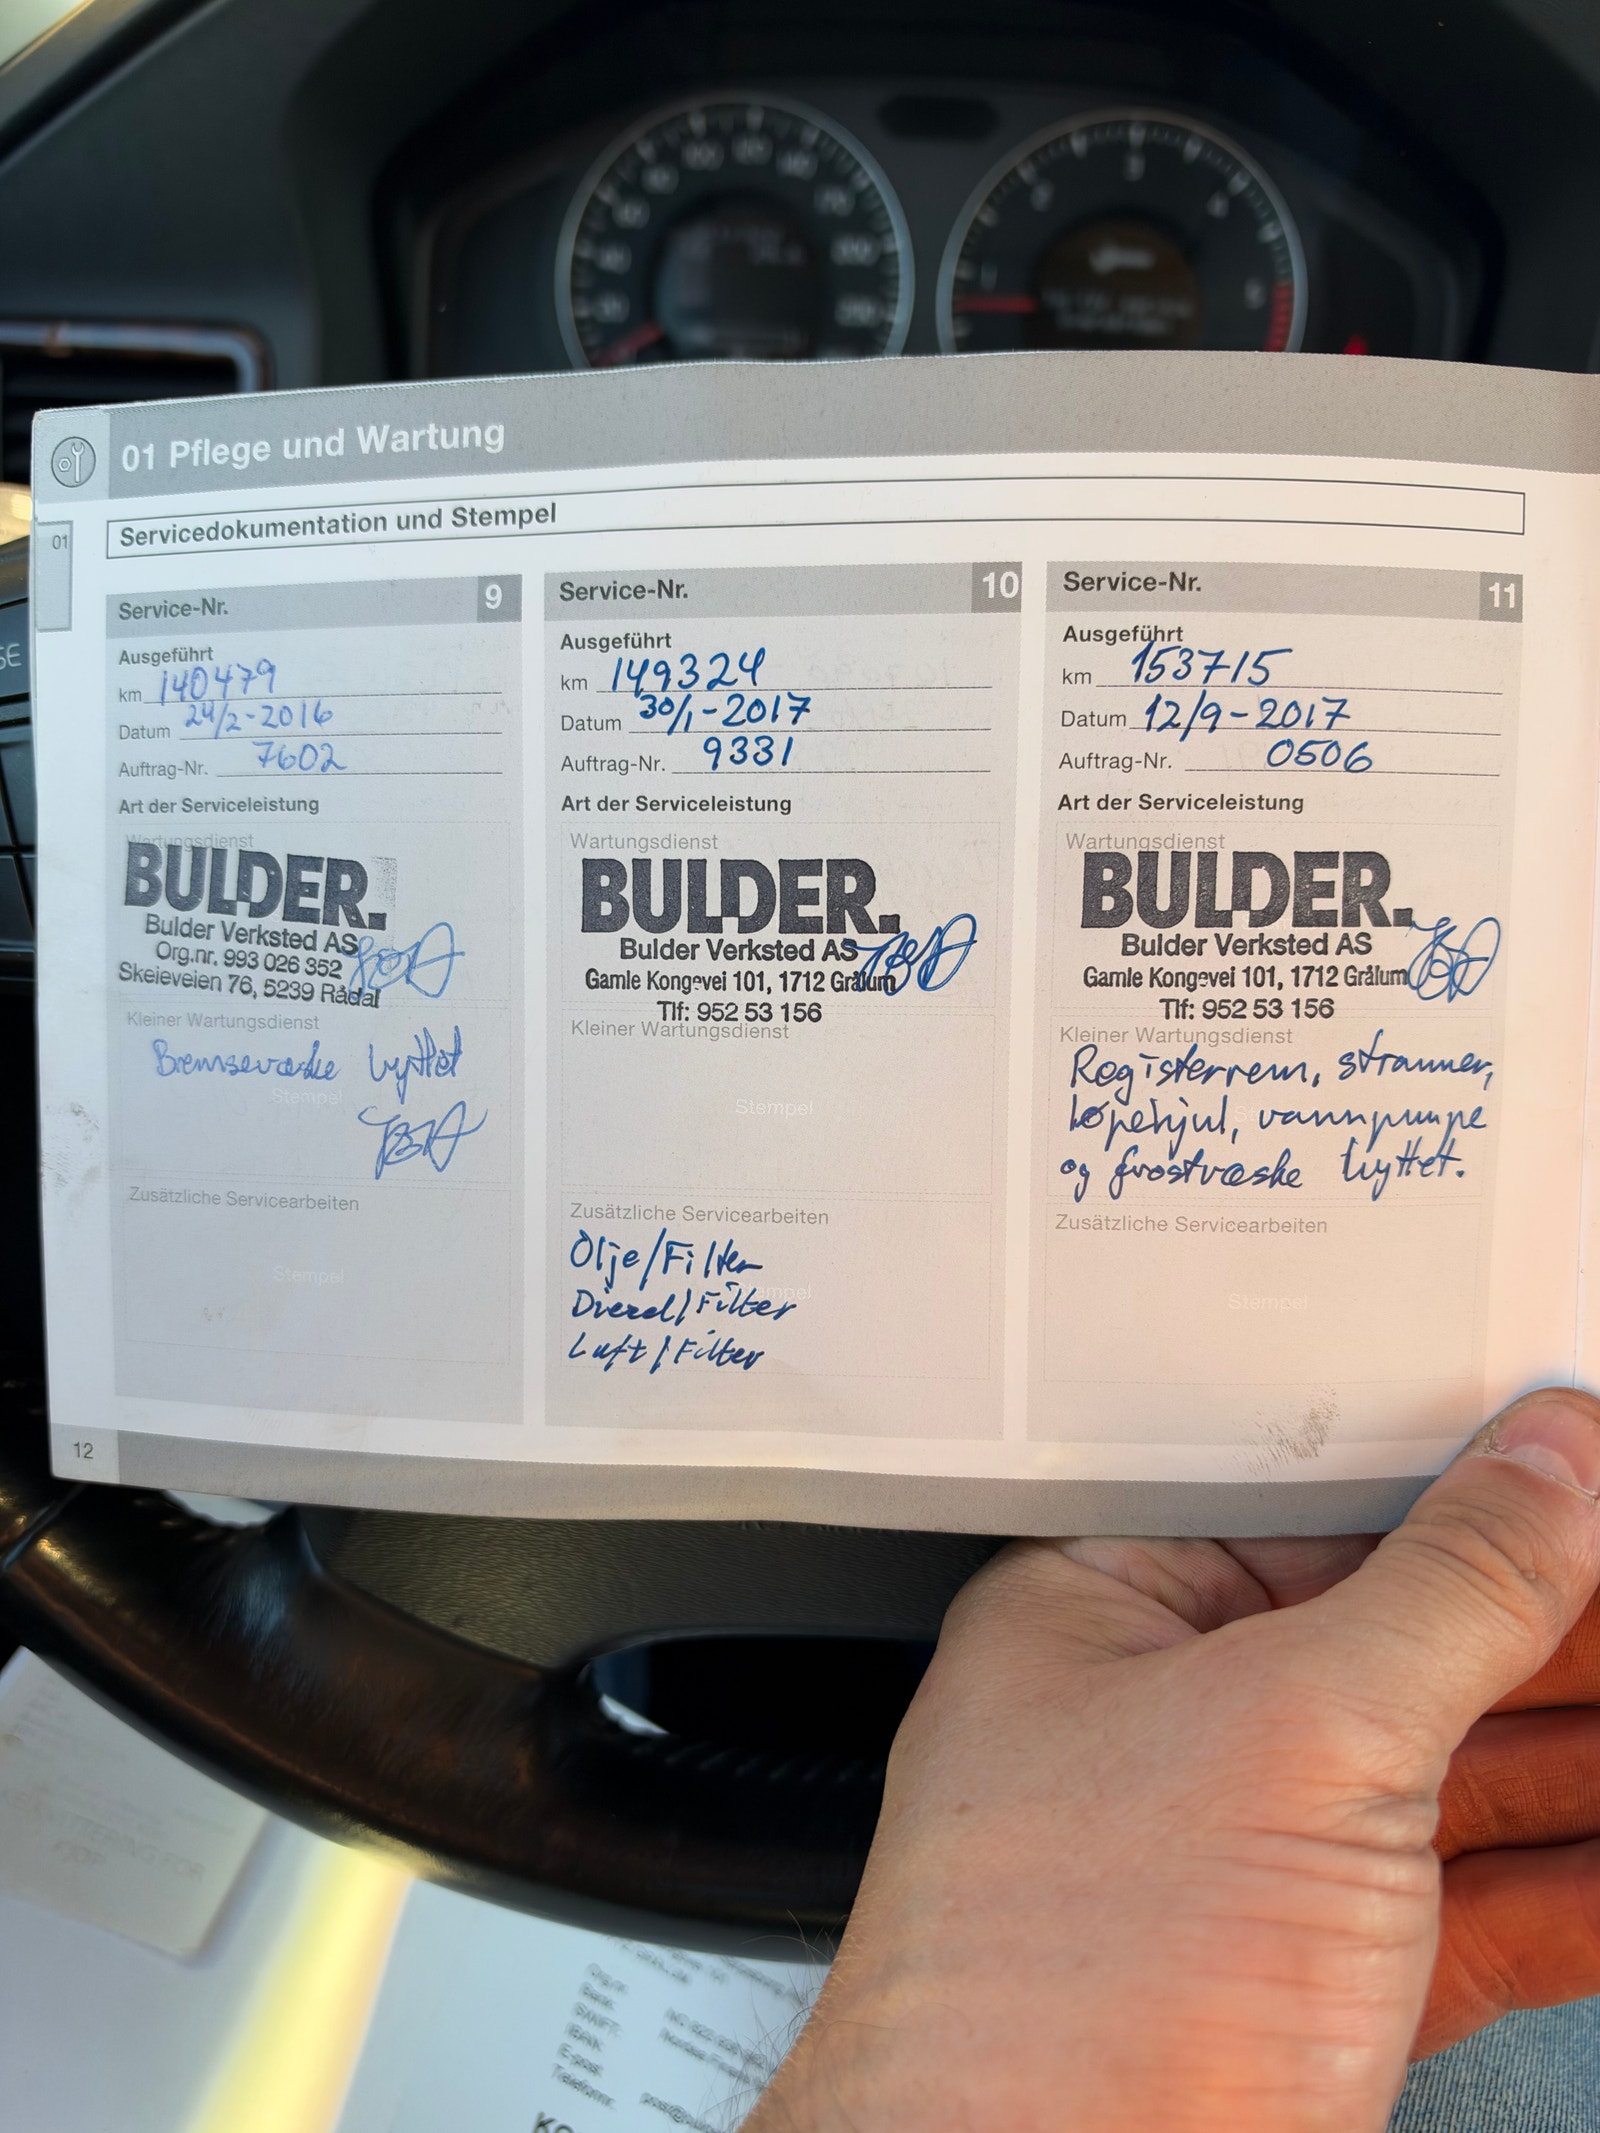 01 Pflege und Wartung
01
Servicedokumentation und Stempel
Service-Nr. 9
Ausgeführt
km 140479
Datum 24/2-2016
Auftrag-Nr. 7602
Art der Serviceleistung
Wartungsdienst
BULDER.
Bulder Verksted AS
Org.nr. 993 026 352
Skeieveien 76, 5239 Rådal
Kleiner Wartungsdienst
Bremsevæske byttet
Stempel
Zusätzliche Servicearbeiten
Stempel
Service-Nr. 10
Ausgeführt
km 149324
Datum 30/1-2017
Auftrag-Nr. 9331
Art der Serviceleistung
Wartungsdienst
BULDER.
Bulder Verksted AS
Gamle Kongevei 101, 1712 Grålum
Tlf: 952 53 156
Kleiner Wartungsdienst
Stempel
Zusätzliche Servicearbeiten
Olje/Filter
Stempel
Diesel/Filter
Luft/Filter
Service-Nr. 11
Ausgeführt
km 153715
Datum 12/9-2017
Auftrag-Nr. 0506
Art der Serviceleistung
Wartungsdienst
BULDER.
Bulder Verksted AS
Gamle Kongevei 101, 1712 Grålum
Tlf: 952 53 156
Kleiner Wartungsdienst
Registerrem, strammer,
løpehjul, vannpumpe
og frostvæske byttet.
Zusätzliche Servicearbeiten
Stempel
12